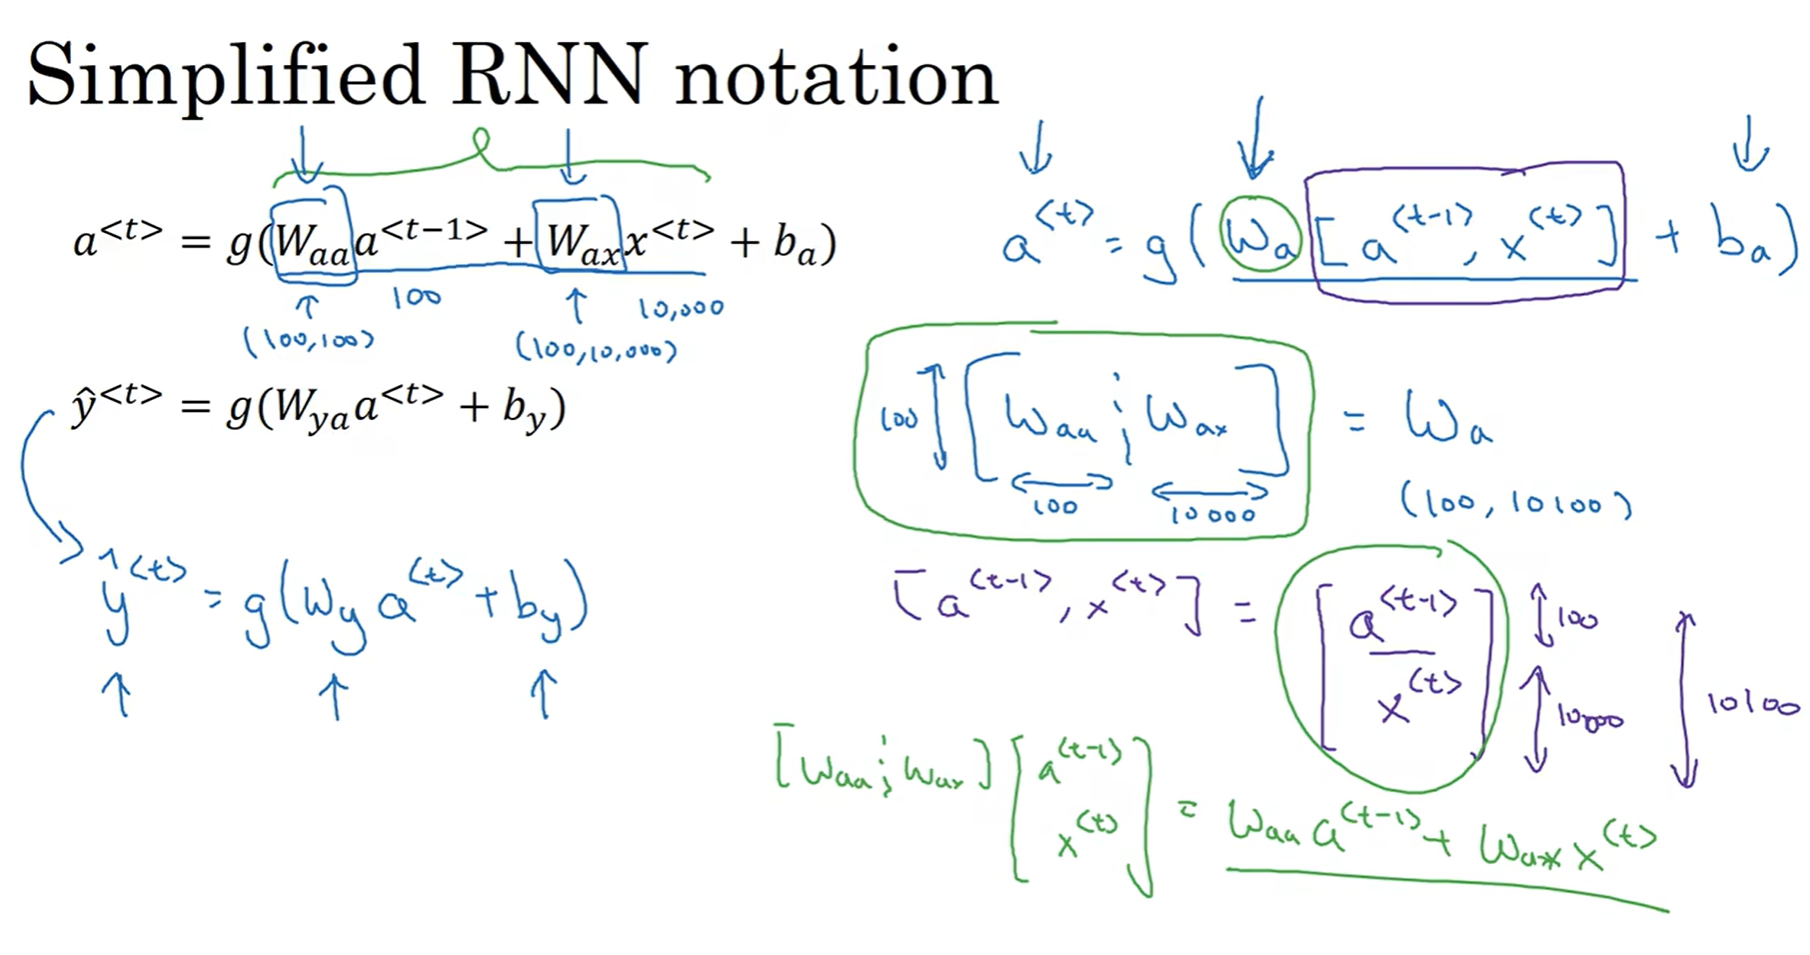 Simplified RNN notation
a^{<t>} = g(W_{aa}a^{<t−1>} + W_{ax}x^{<t>} + b_a)
↑ 100 ↑ 10,000
(100,100) (100,10,000)
ŷ^{<t>} = g(W_{ya}a^{<t>} + b_y)
ŷ^{<t>} = g(W_y a^{<t>} + b_y)
a^{<t>} = g(W_a [a^{<t-1>}, x^{<t>}] + b_a)
100 [W_{aa} ¦ W_{ax}] = W_a
100 10000 (100, 10100)
[a^{<t-1>}, x^{<t>}] =
a^{<t-1>} 100
x^{<t>} 10000 10100
[W_{aa} ¦ W_{ax}] [a^{<t-1>}
x^{<t>}] = W_{aa} a^{<t-1>} + W_{ax} x^{<t>}